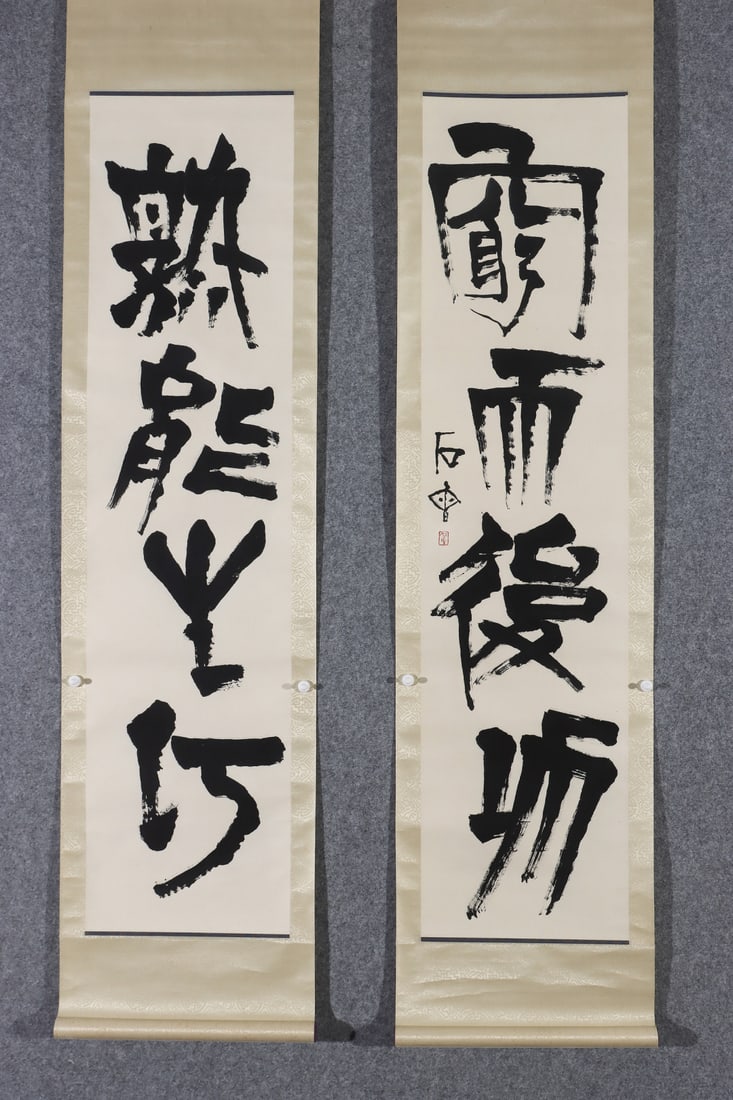 窮而後功
石
熟能生巧